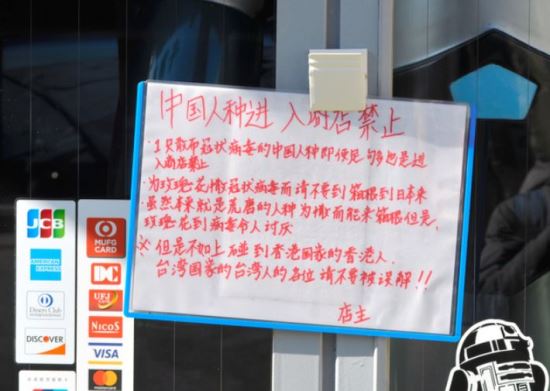 中国人种进 入商店禁止
・1只散布冠状病毒的中国人种即使足够也是进
入商店禁止
・为玫瑰花撒冠状病毒而请不要到箱根到日本来
虽然本来就是荒唐的人种为撒而能来箱根但是,
玫瑰花到病毒令人讨厌
※但是不如上碰到香港国家的香港人.
台湾国家的台湾人的各位请不要被误解!!
店主
JCB
MUFG CARD
AMERICAN EXPRESS
DC
Diners Club
INTERNATIONAL
UFJ Card
DISCOVER
NICOS
VISA
MasterCard